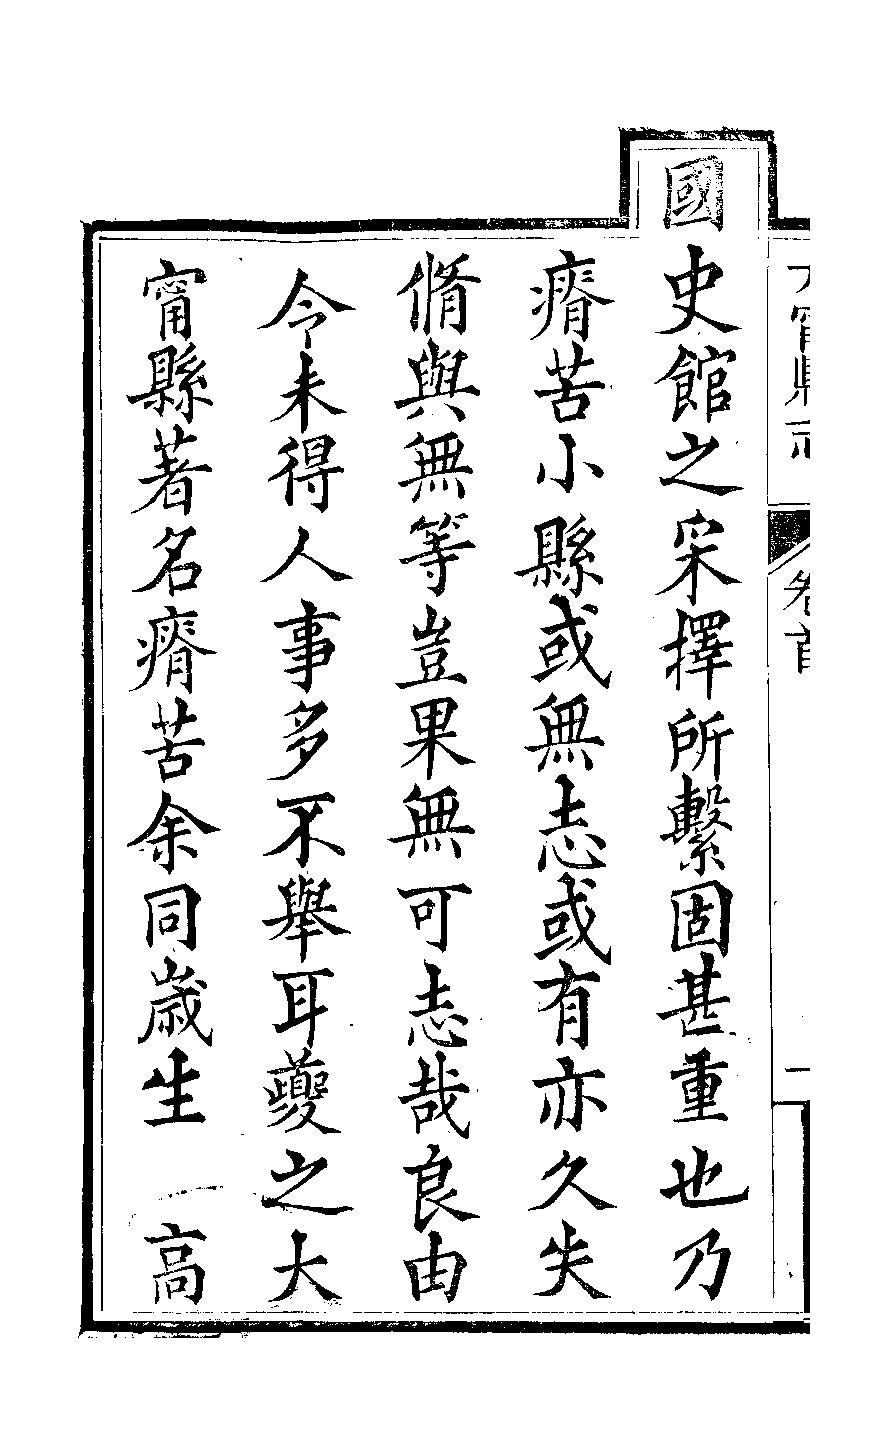 國史館之寀擇所繫固甚重也乃
瘠苦小縣或無志或有亦久失
脩與無等豈果無可志哉良由
令未得人事多不舉耳夔之大
甯縣著名瘠苦余同歲生 高
大甯縣志 卷首 一